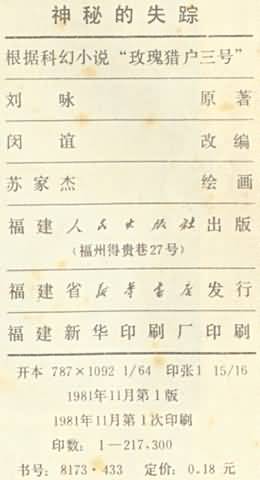 神秘的失踪
根据科幻小说“玫瑰猎户三号”
刘咏 原著
闵谊 改编
苏家杰 绘画
福建人民出版社出版
(福州得贵巷27号)
福建省新华书店发行
福建新华印刷厂印刷
开本 787×1092 1/64 印张1 15/16
1981年11月第1版
1981年11月第1次印刷
印数：1—217,300
书号：8173·433 定价：0.18元